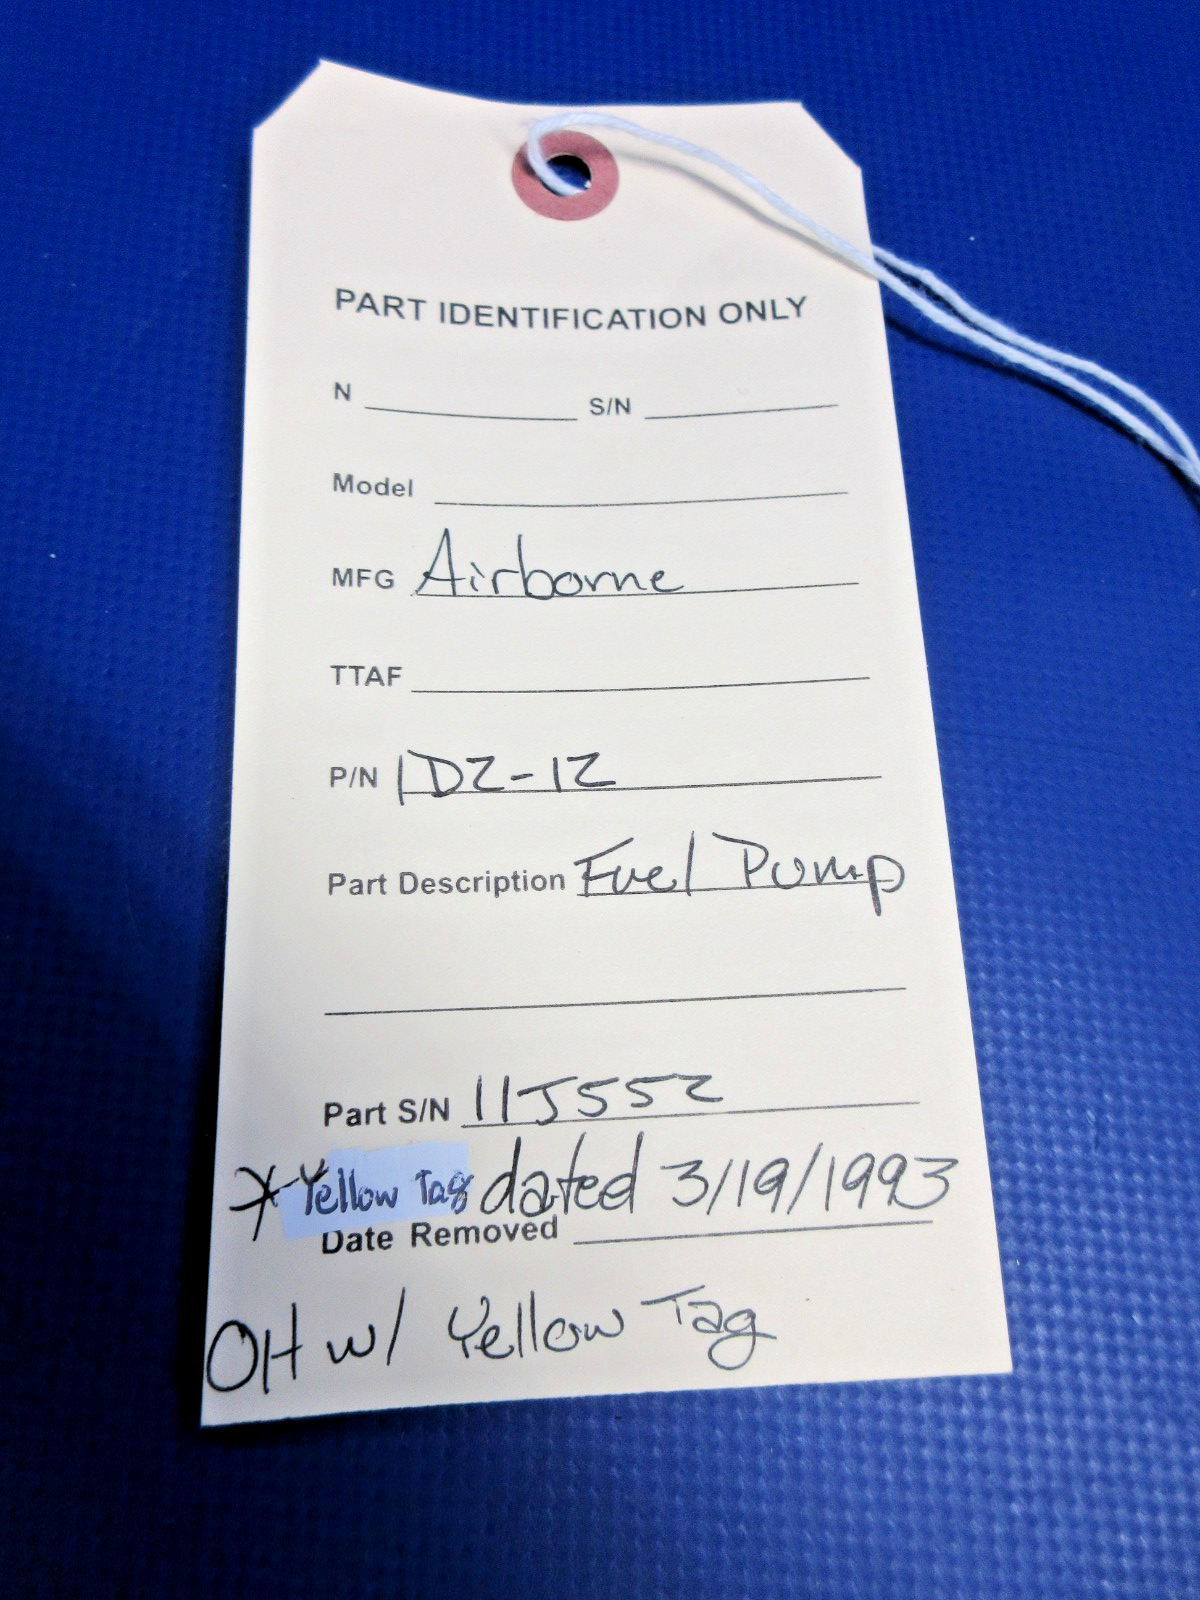 PART IDENTIFICATION ONLY
N S/N
Model
MFG Airborne
TTAF
P/N 1D2-12
Part Description Fuel Pump
Part S/N 11J552
* Yellow Tag dated 3/19/1993
Date Removed
OH w/ Yellow Tag